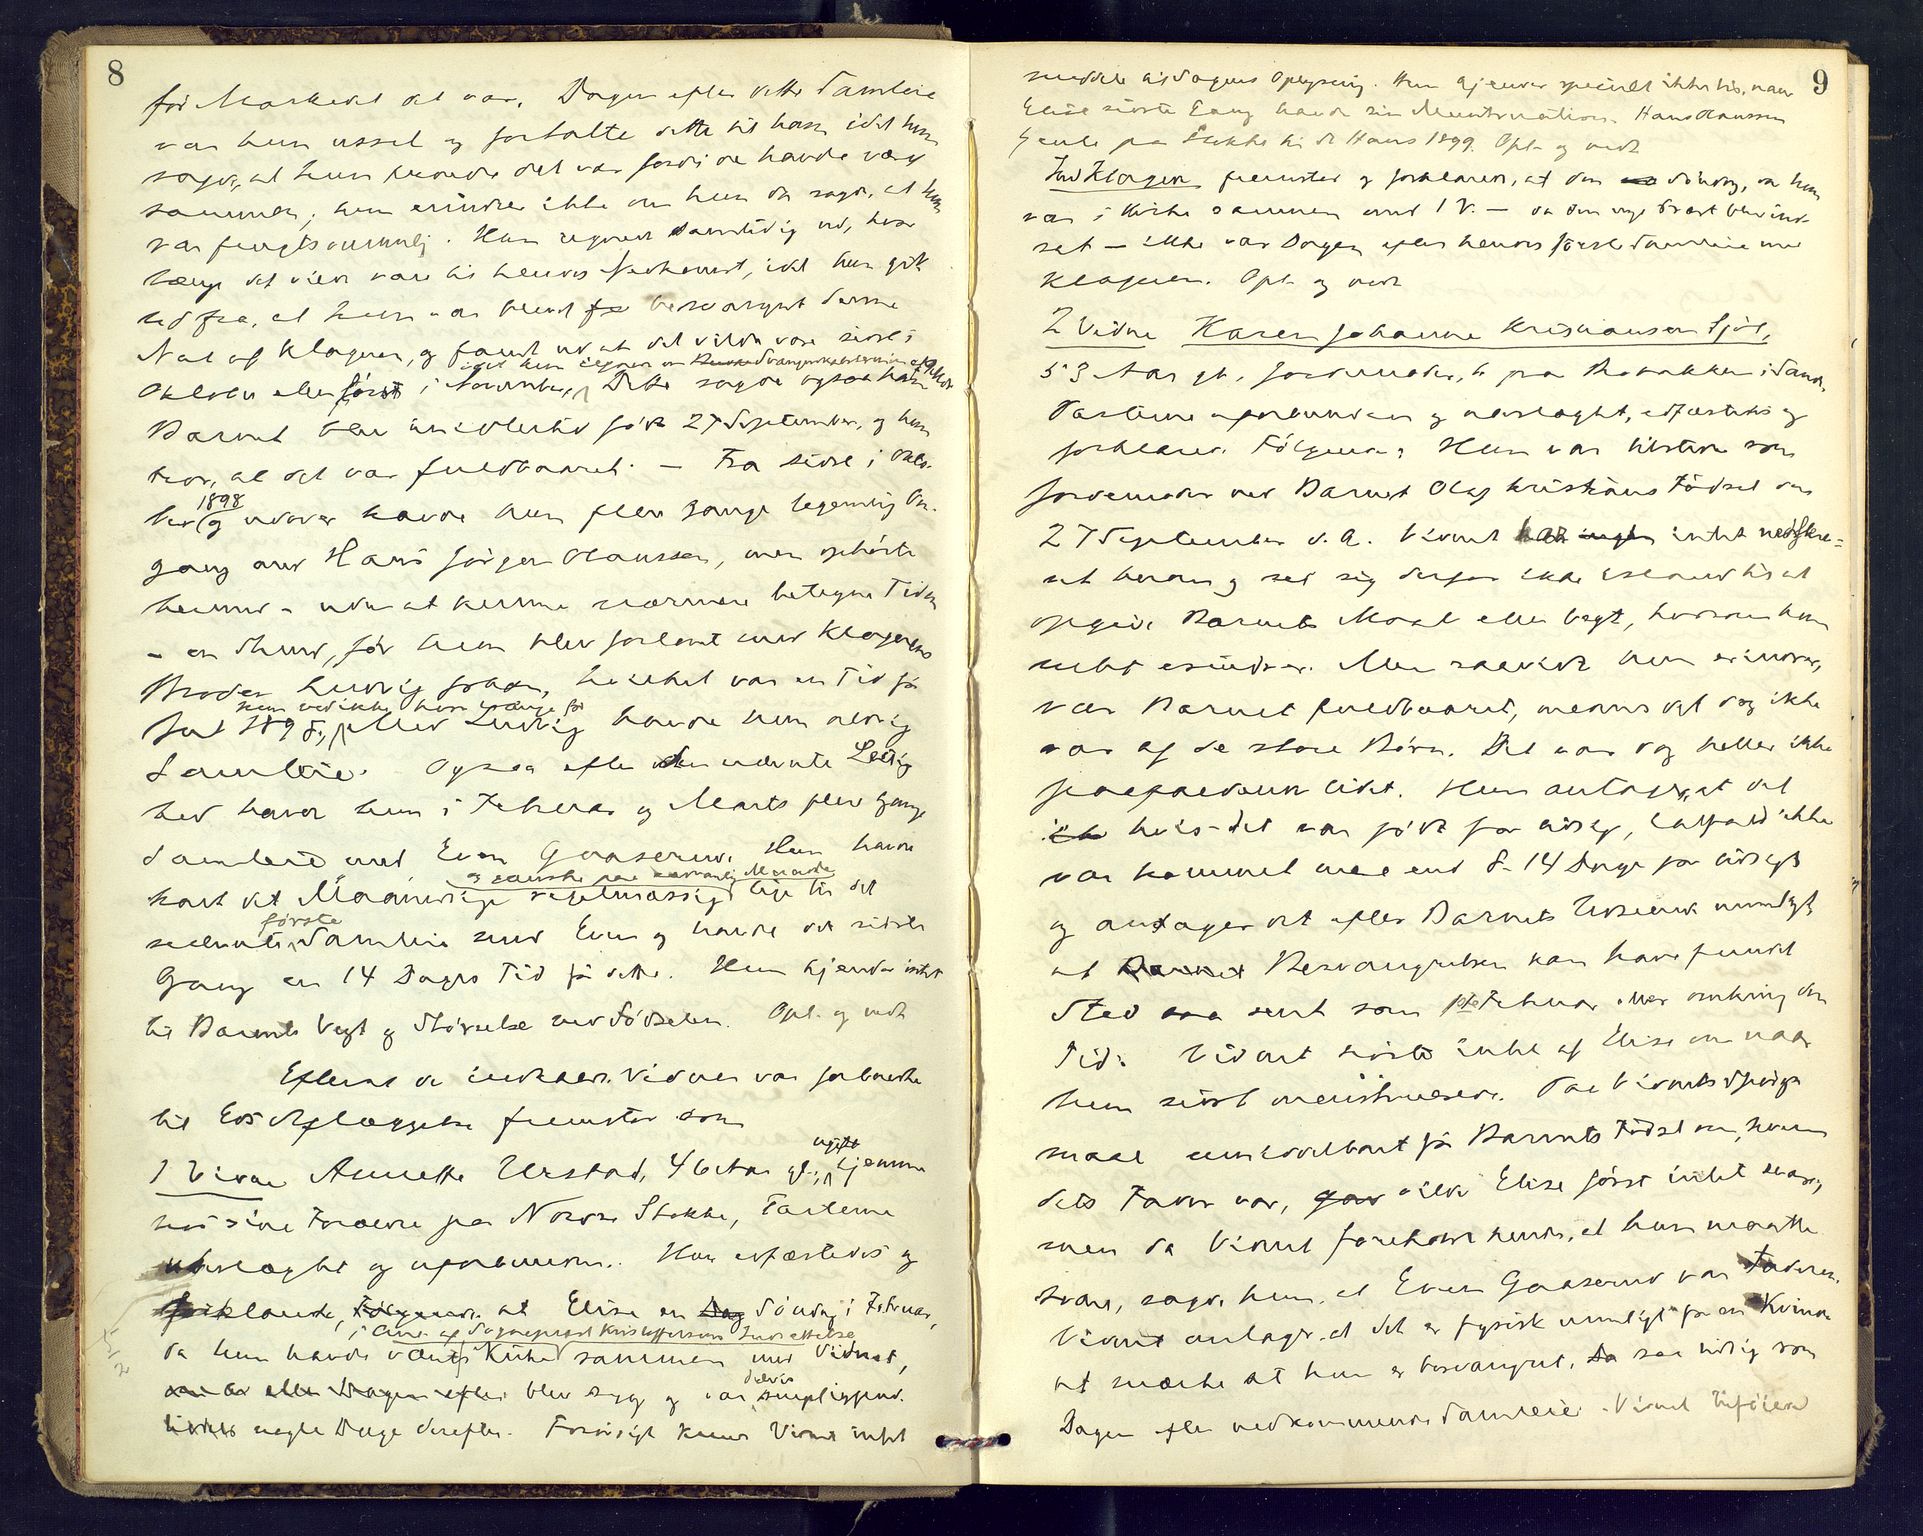 8
før Markedet det var. Dagen efter dette Samleie
var hun ussel og fortalte dette til ham idet hun
sagde, at hun troede det var fordi de havde været
sammen; hun erindrer ikke om hun da sagde, at hun
var frugtsommelig. Hun regnede samtidig ud, hvor
længe det vilde vare til hendes Nedkomst, idet hun gik
ud fra, at hun var blevet besvangret denne
Nat af Klageren, og fandt ud at det vilde være sidst i
Oktober eller først i November, Dette sagde ogsaa
Barnet blev imidlertid født 27 September, og hun
tror, at det var fuldbaaret. — Fra sidst i Okto-
ber 1898 og udover havde hun flere Gange legemlig Om-
gang med Hans Jørgen Olaussen, men ophørte
hermed - uden at kunne nærmere betegne Tiden
- en Stund, før hun blev forlovet med Klagerens
Broder Ludvig Johan, hvilket var en Tid før
hun ved ikke hvor længe før
Jul 1898, Med Ludvig havde hun aldrig
Samleie. Ogsaa efter den nævnte Leilig
hed havde hun i Februar og Marts flere Gange
Samleie med Even Gaaserud. Hun havde
og ganske paa sædvanlig Maade
havt det Maanedlige regelmæssigt lige til det
første
nævnte Samleie med Even og havde det sidste
Gang en 14 Dages Tid før dette. Hun kjender intet
til Barnets Vegt og Størrelse ved Fødselen. Opl. og vedt
Efterat de indkaldte Vidner var forberedte
til Eds Aflæggelse fremstod som
1 Vidne Annette Urstad, 46 Aar gl., ugift, hjemme
hos sine Forældre paa Nordre Stokke, Parterne
ubeslægtet og uforbunden. Hun edfæstedes og
forklarede, Følgende: at Elise en Dag Søndag i Februar,
i Anl. af Sogneprest Kristoffersens Indsættelse
da hun havde været i Kirke sammen med Vidnet,
eller Dagen efter blev syg og var delvis sengeliggende
nogle Dage derefter. Forøvrigt kunde Vidnet intet
9
meddele til Sagens Oplysning. Hun kjender specielt ikke til, naar
Elise sidste Gang havde sin Menstruation. Hans Olaussen
tjente paa Stokke til St Hans 1899. Opl. og vedt
Indklagede fremstod og forklarede, at den Søndag, da hun
var i Kirke sammen med 1 V. — da den nye Prest blev ind-
sat — ikke var Dagen efter hendes første Samleie med
Klageren. Opl. og vedt
2 Vidne Karen Johanne Kristiansen Sjøl,
53 Aar gl., Jordemoder, b. paa Robakken i Sande,
Parterne uforbunden og ubeslægtet, edfæstedes og
forklarede Følgende: Hun var tilstede som
Jordemoder ved Barnet Olaf Kristians Fødsel den
27 September d. A. Vidnet har ingen intet nedskre-
vet herom og ser sig derfor ikke istand til at
opgive Barnets Maal eller Vegt, hvorom hun
intet erindrer. Men saavidt hun erindrer,
var Barnet fuldbaaret, mens det dog ikke
var af de store Børn. Det var dog heller ikke
paafaldende lidet. Hun antager, at det
hvis det var født for tidlig, ialfald ikke
var kommet mere end 8-14 Dage for tidligt
og antager det efter Barnets Udseende muligt,
at Barnet Besvangrelsen kan have fundet
Sted saa sent som 1ste Februar eller omkring den
Tid. Vidnet hørte intet af Elise om naar
hun sidst menstruerede. Paa Vidnets Spørgs-
maal umiddelbart før Barnets Fødsel om, hvem
dets Fader var, gav vilde Elise først intet svare,
men da Vidnet foreholdt hende, at hun maatte
svare, sagde hun, at Even Gaaserud var Faderen.
Vidnet antager, at det er fysisk umuligt for en Kvinde
at mærke at hun er besvangret, saa tidlig som
Dagen efter vedkommende Samleie. Vidnet tilføiede